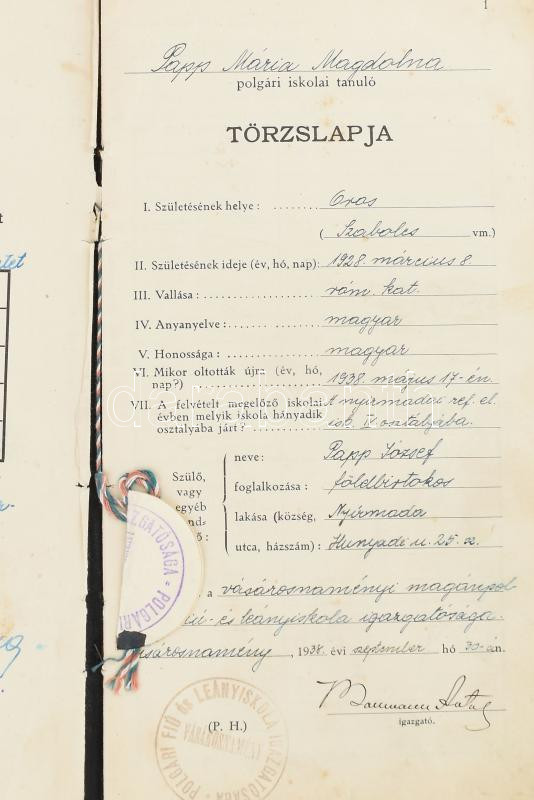 1
Papp Mária Magdolna
polgári iskolai tanuló
TÖRZSLAPJA
I. Születésének helye: Oros
( Szabolcs vm.)
II. Születésének ideje (év, hó, nap): 1928. március 8.
III. Vallása: róm. kat.
IV. Anyanyelve: magyar
V. Honossága: magyar
VI. Mikor oltották újra (év, hó, nap?) 1938. május 17-én.
VII. A felvételt megelőző iskolai évben melyik iskola hányadik osztályába járt? A nyírmadai ref. el. isk. IV. osztályába.
Szülő, vagy egyéb
neve: Papp József
foglalkozása: földbirtokos
lakása (község, Nyírmada
utca, házszám): Hunyadi u. 25. sz.
a vásárosnaményi magánpol
fiú- és leányiskola igazgatósága.
Vásárosnamény, 1938. évi szeptember hó 30-án.
igazgató.
(P. H.)
POLGÁRI FIÚ ÉS LEÁNYISKOLA IGAZGATÓSÁGA
VÁSÁROSNAMÉNY
IGAZGATÓSÁGA * POLGÁRI
darabanth